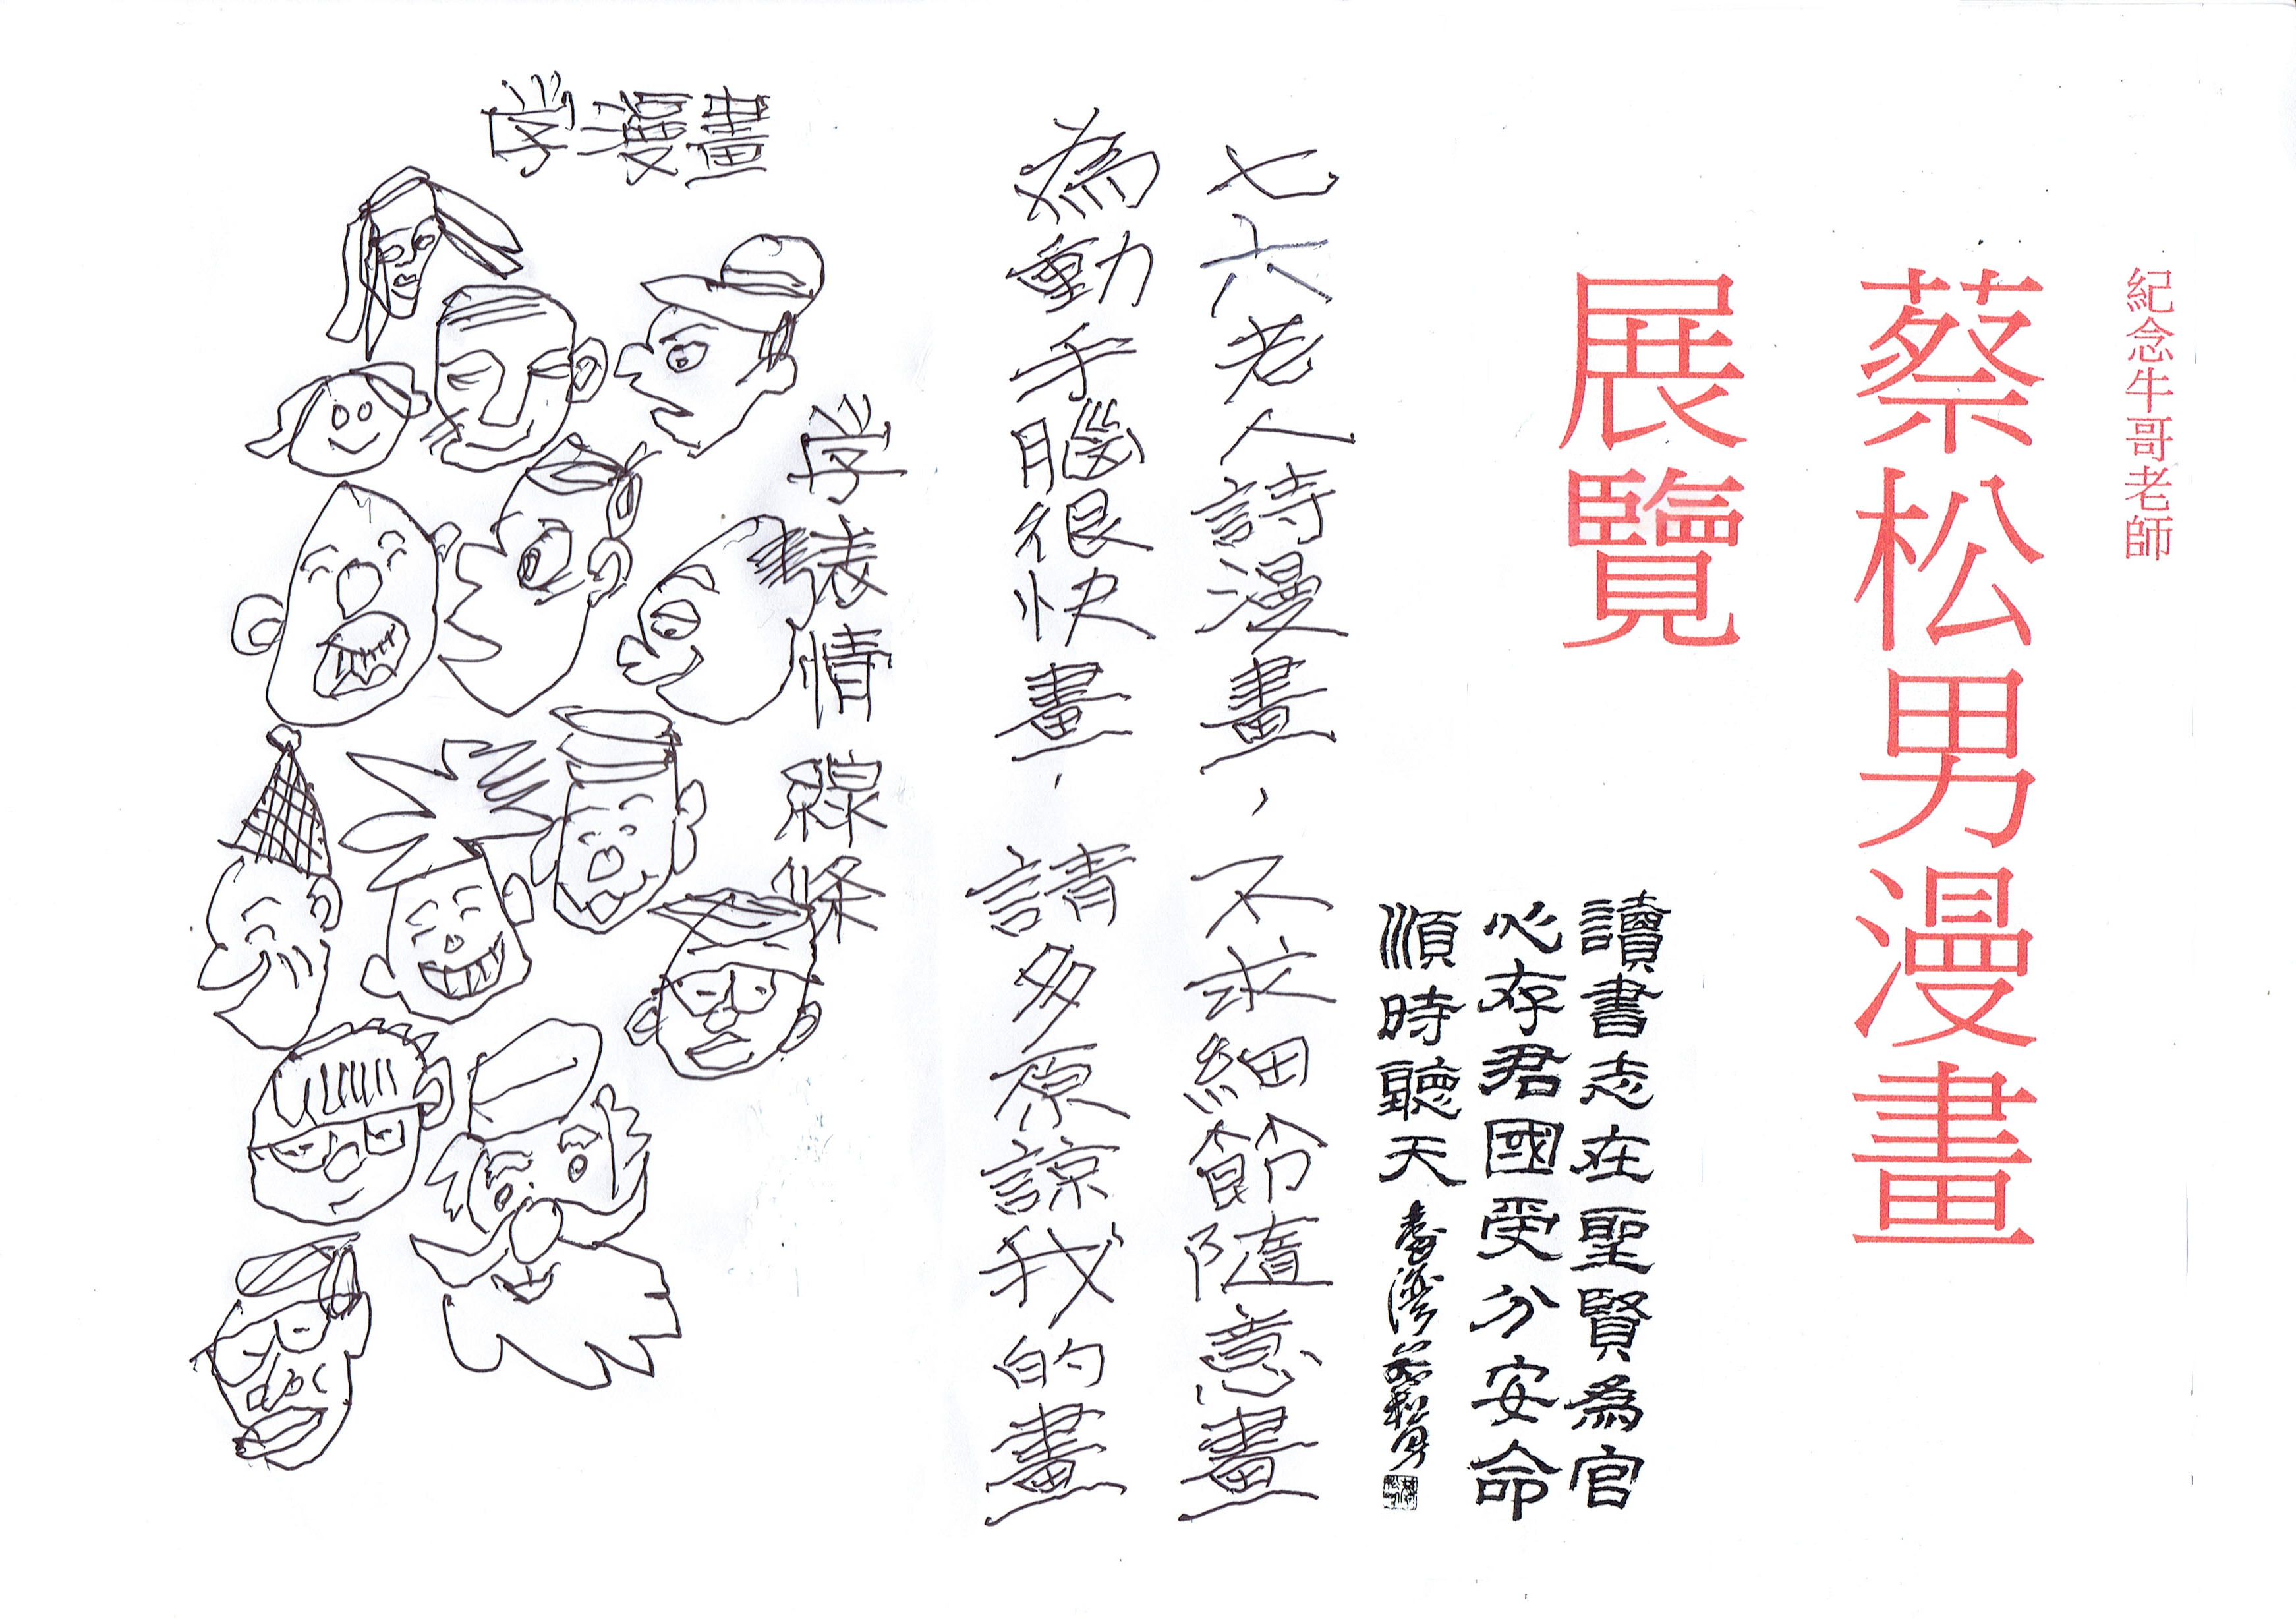 紀念牛哥老師
蔡松男漫畫
展覽
讀書志在聖賢為官
心存君國受分安命
順時聽天 臺灣蔡松男
七六老人詩漫畫,不求細節隨意畫
為動手腦很快畫,請多原諒我的畫
学表情線條
学漫畫